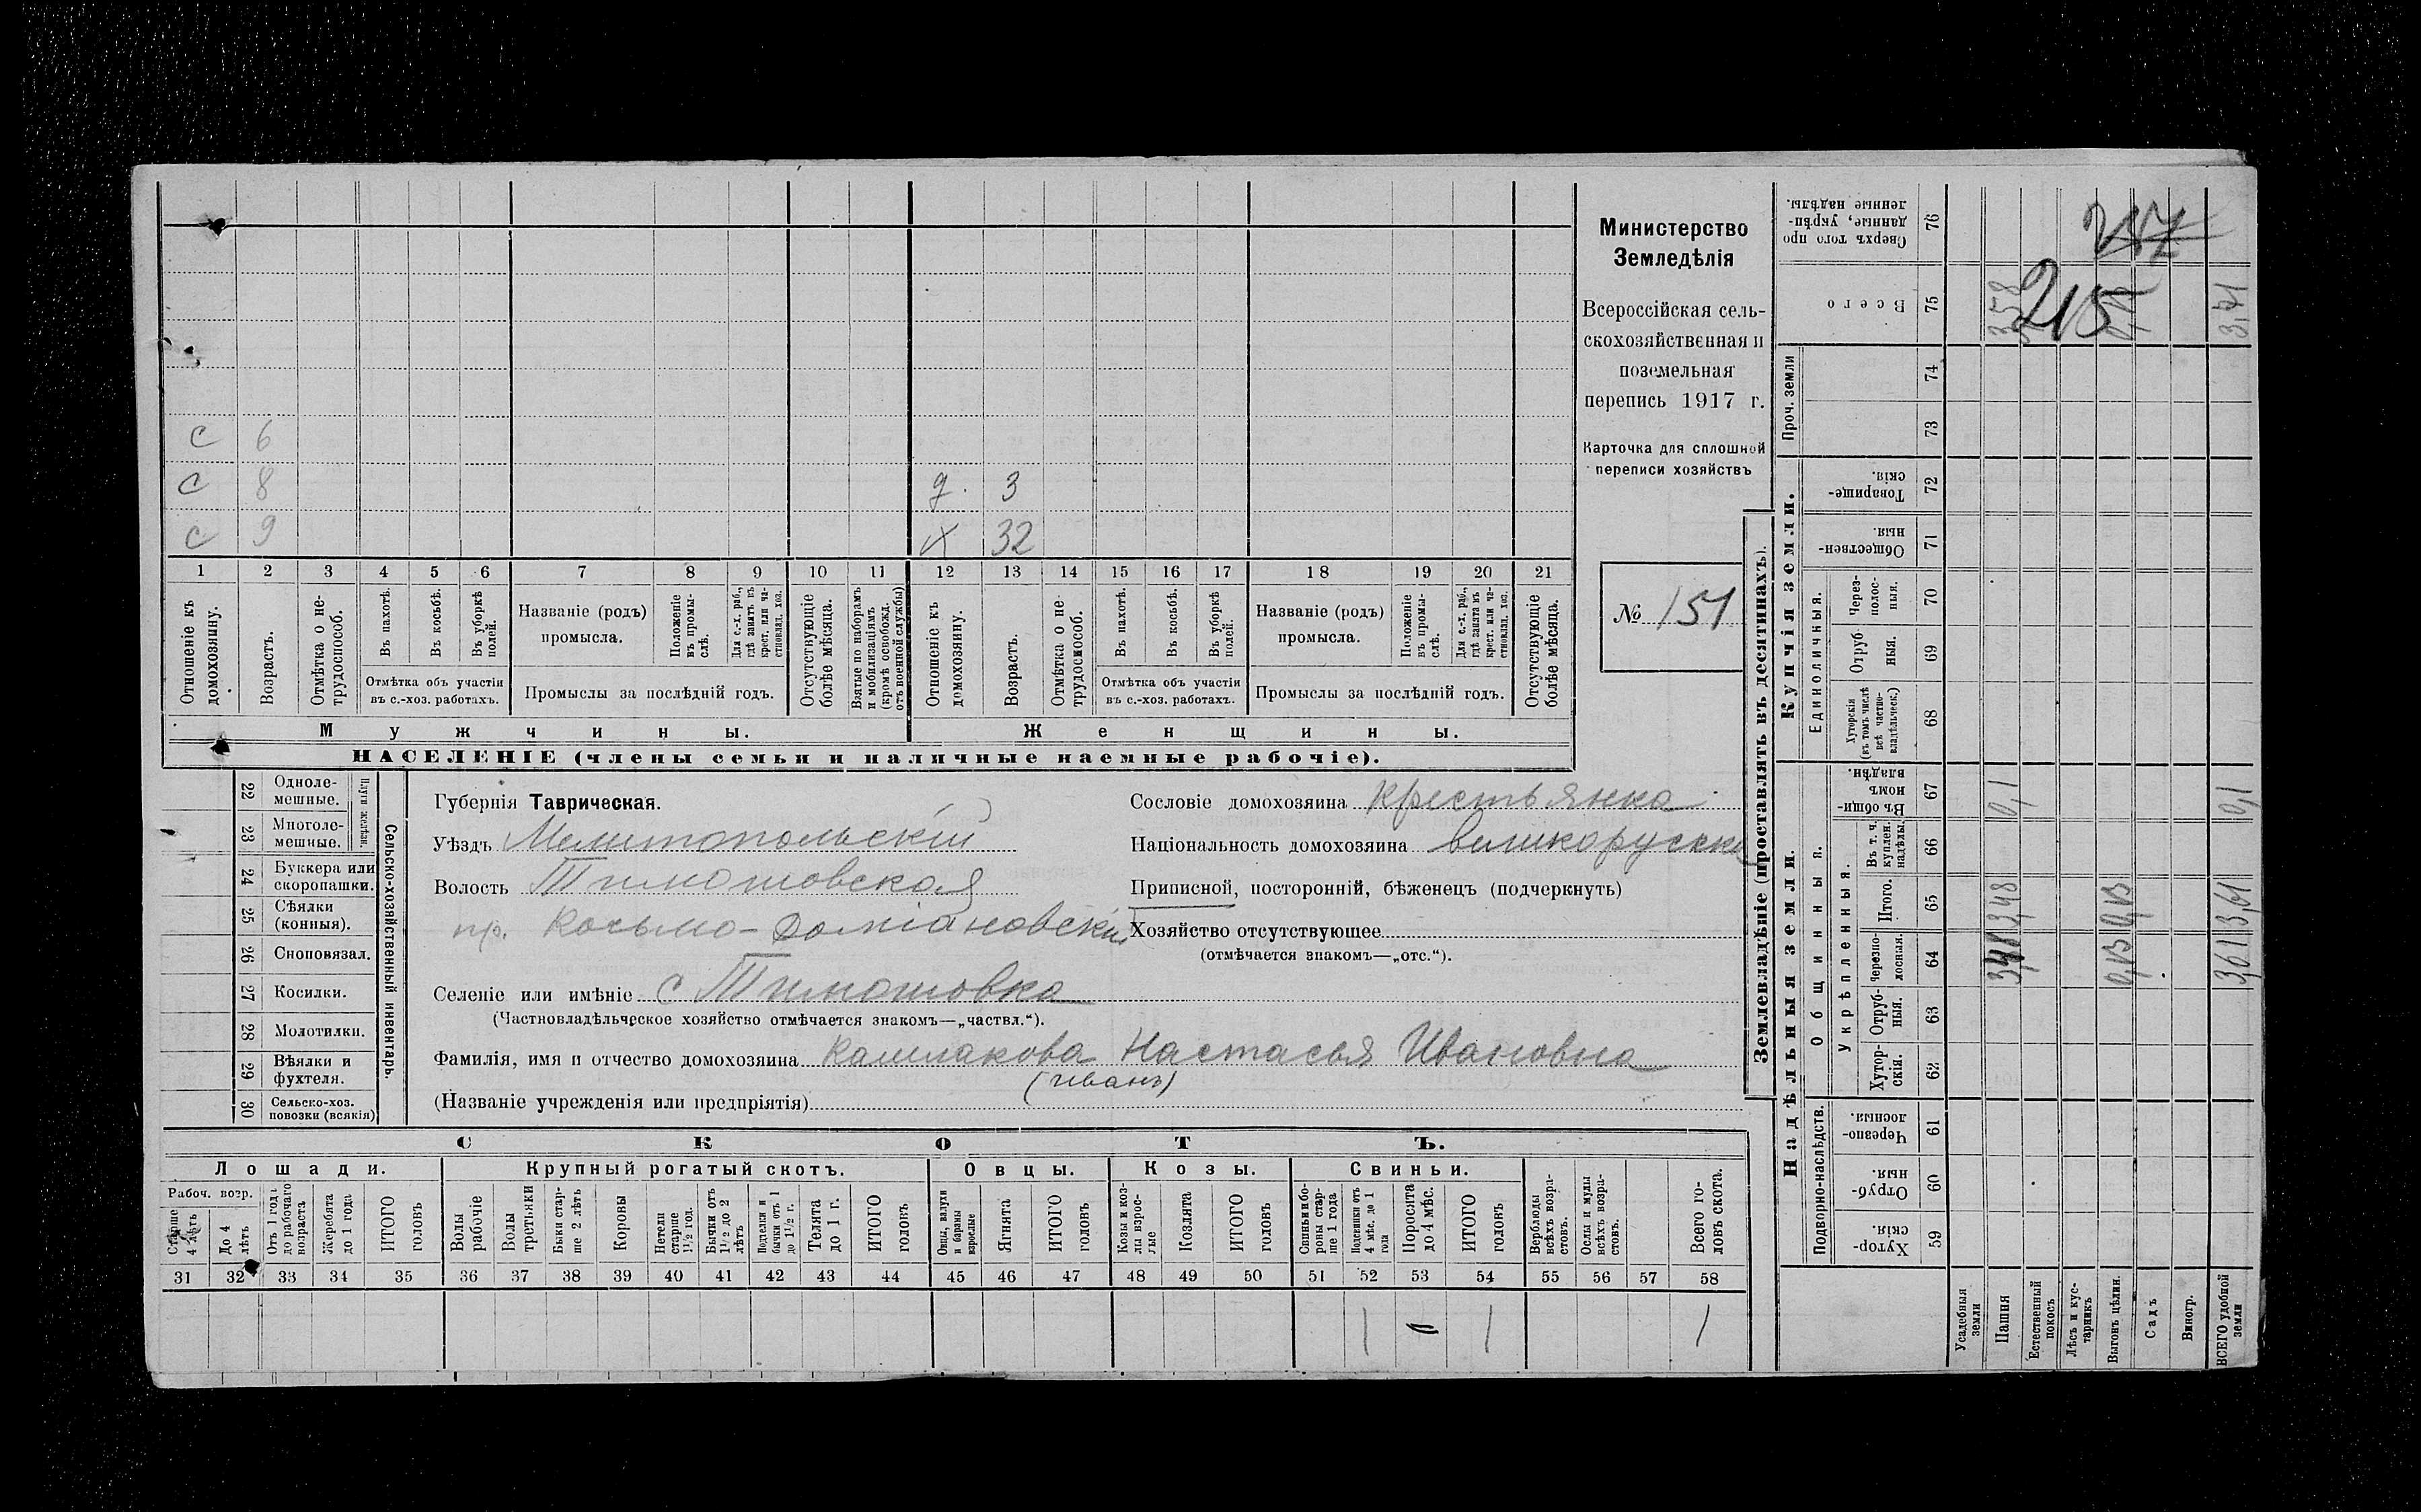 с 6
с 8 д. 3
с 9 х 32
1 2 3 4 5 6 7 8 9 10 11 12 13 14 15 16 17 18 19 20 21
Отношеніе къ домохозяину.
Возрастъ.
Отмѣтка о не- трудоспособ.
Въ пахотѣ.
Въ косьбѣ.
Въ уборкѣ полей.
Отмѣтка объ участіи
въ с.-хоз. работахъ.
Названіе (родъ)
промысла.
Положеніе въ промы- слѣ.
Для с.-х. раб., гдѣ занятъ въ крест. или ча- стновлад. хоз.
Промыслы за послѣдній годъ.
Отсутствующіе болѣе мѣсяца.
Взятые по наборамъ и мобилизаціямъ (кромѣ освобожд. отъ военной службы)
Отношеніе къ домохозяину.
Возрастъ.
Отмѣтка о не- трудоспособ.
Въ пахотѣ.
Въ косьбѣ.
Въ уборкѣ полей.
Отмѣтка объ участіи
въ с.-хоз. работахъ.
Названіе (родъ)
промысла.
Положеніе въ промы- слѣ.
Для с.-х. раб., гдѣ занята въ крест. или ча- стновлад. хоз.
Промыслы за послѣдній годъ.
Отсутствующіе болѣе мѣсяца.
Мужчины. Женщины.
НАСЕЛЕНІЕ (члены семьи и наличные наемные рабочіе).
Министерство
Земледѣлія
Всероссійская сель-
скохозяйственная и
поземельная
перепись 1917 г.
Карточка для сплошной
переписи хозяйствъ
№ 151
22 Одноле- мешные.
23 Многоле- мешные.
Плуги желѣзн.
24 Буккера или скоропашки.
25 Сѣялки (конныя).
26 Сноповязал.
27 Косилки.
28 Молотилки.
29 Вѣялки и фухтеля.
30 Сельско-хоз. повозки (всякія)
Сельско-хозяйственный инвентарь.
Губернія Таврическая.
Уѣздъ Мелитопольскій
Волость Тимошовская
пр. Косьмо-Доміановскій
Селеніе или имѣніе с Тимошовка
(Частновладѣльческое хозяйство отмѣчается знакомъ—„частвл.“).
Фамилія, имя и отчество домохозяина Калмакова Настасья Ивановна
(Иванъ)
(Названіе учрежденія или предпріятія)
Сословіе домохозяина крестьянка
Національность домохозяина великорусск
Приписной, посторонній, бѣженецъ (подчеркнуть)
Хозяйство отсутствующее
(отмѣчается знакомъ—„отс.“).
СКОТЪ.
Лошади. Крупный рогатый скотъ. Овцы. Козы. Свиньи.
Рабоч. возр.
Старше 4 лѣтъ
До 4 лѣтъ
Отъ 1 года до рабочаго возраста
Жеребята до 1 года
ИТОГО головъ
Волы рабочіе
Волы третьяки
Быки стар- ше 2 лѣтъ
Коровы
Нетели старше 1½ год.
Бычки отъ 1½ до 2 лѣтъ
Подтелки и бычки отъ 1 до 1½ г.
Телята до 1 г.
ИТОГО головъ
Овцы, валухи и бараны взрослые
Ягнята
ИТОГО головъ
Козы и коз- лы взрос- лые
Козлята
ИТОГО головъ
Свиньи и бо- ровы стар- ше 1 года
Подсвинки отъ 4 мѣс. до 1 года
Поросята до 4 мѣс.
ИТОГО головъ
Верблюды всѣхъ возра- стовъ.
Ослы и мулы всѣхъ возра- стовъ.
Всего го- ловъ скота.
31 32 33 34 35 36 37 38 39 40 41 42 43 44 45 46 47 48 49 50 51 52 53 54 55 56 57 58
1 – 1 1
Землевладѣніе (проставлять въ десятинахъ).
Надѣльныя земли. Купчія земли. Проч. земли
Подворно-наслѣдств.
Общинныя.
Укрѣпленныя.
Единоличныя.
Хутор- скія. 59
Отруб- ныя. 60
Черезпо- лосныя. 61
Хутор- скія. 62
Отруб- ныя. 63
Черезпо- лосныя. 64
Итого. 65
Въ т. ч. куплен. надѣлы. 66
Въ общин- номъ владѣн. 67
Хуторскія (въ томъ числѣ всѣ частно- владѣльческ.) 68
Отруб- ныя. 69
Через- полос- ныя. 70
Обществен- ныя. 71
Товарище- скія. 72
73
74
Всего 75
Сверхъ того про данные, укрѣп- ленные надѣлы. 76
Усадебныя земли
Пашня 3,48 3,48 0,1 3,58
Естественный покосъ
Лѣсъ и кус- тарникъ
Выгонъ цѣлин. 0,13 0,13
Садъ
Виногр.
ВСЕГО удобной земли 3,61 3,61 0,1 3,71
257
215